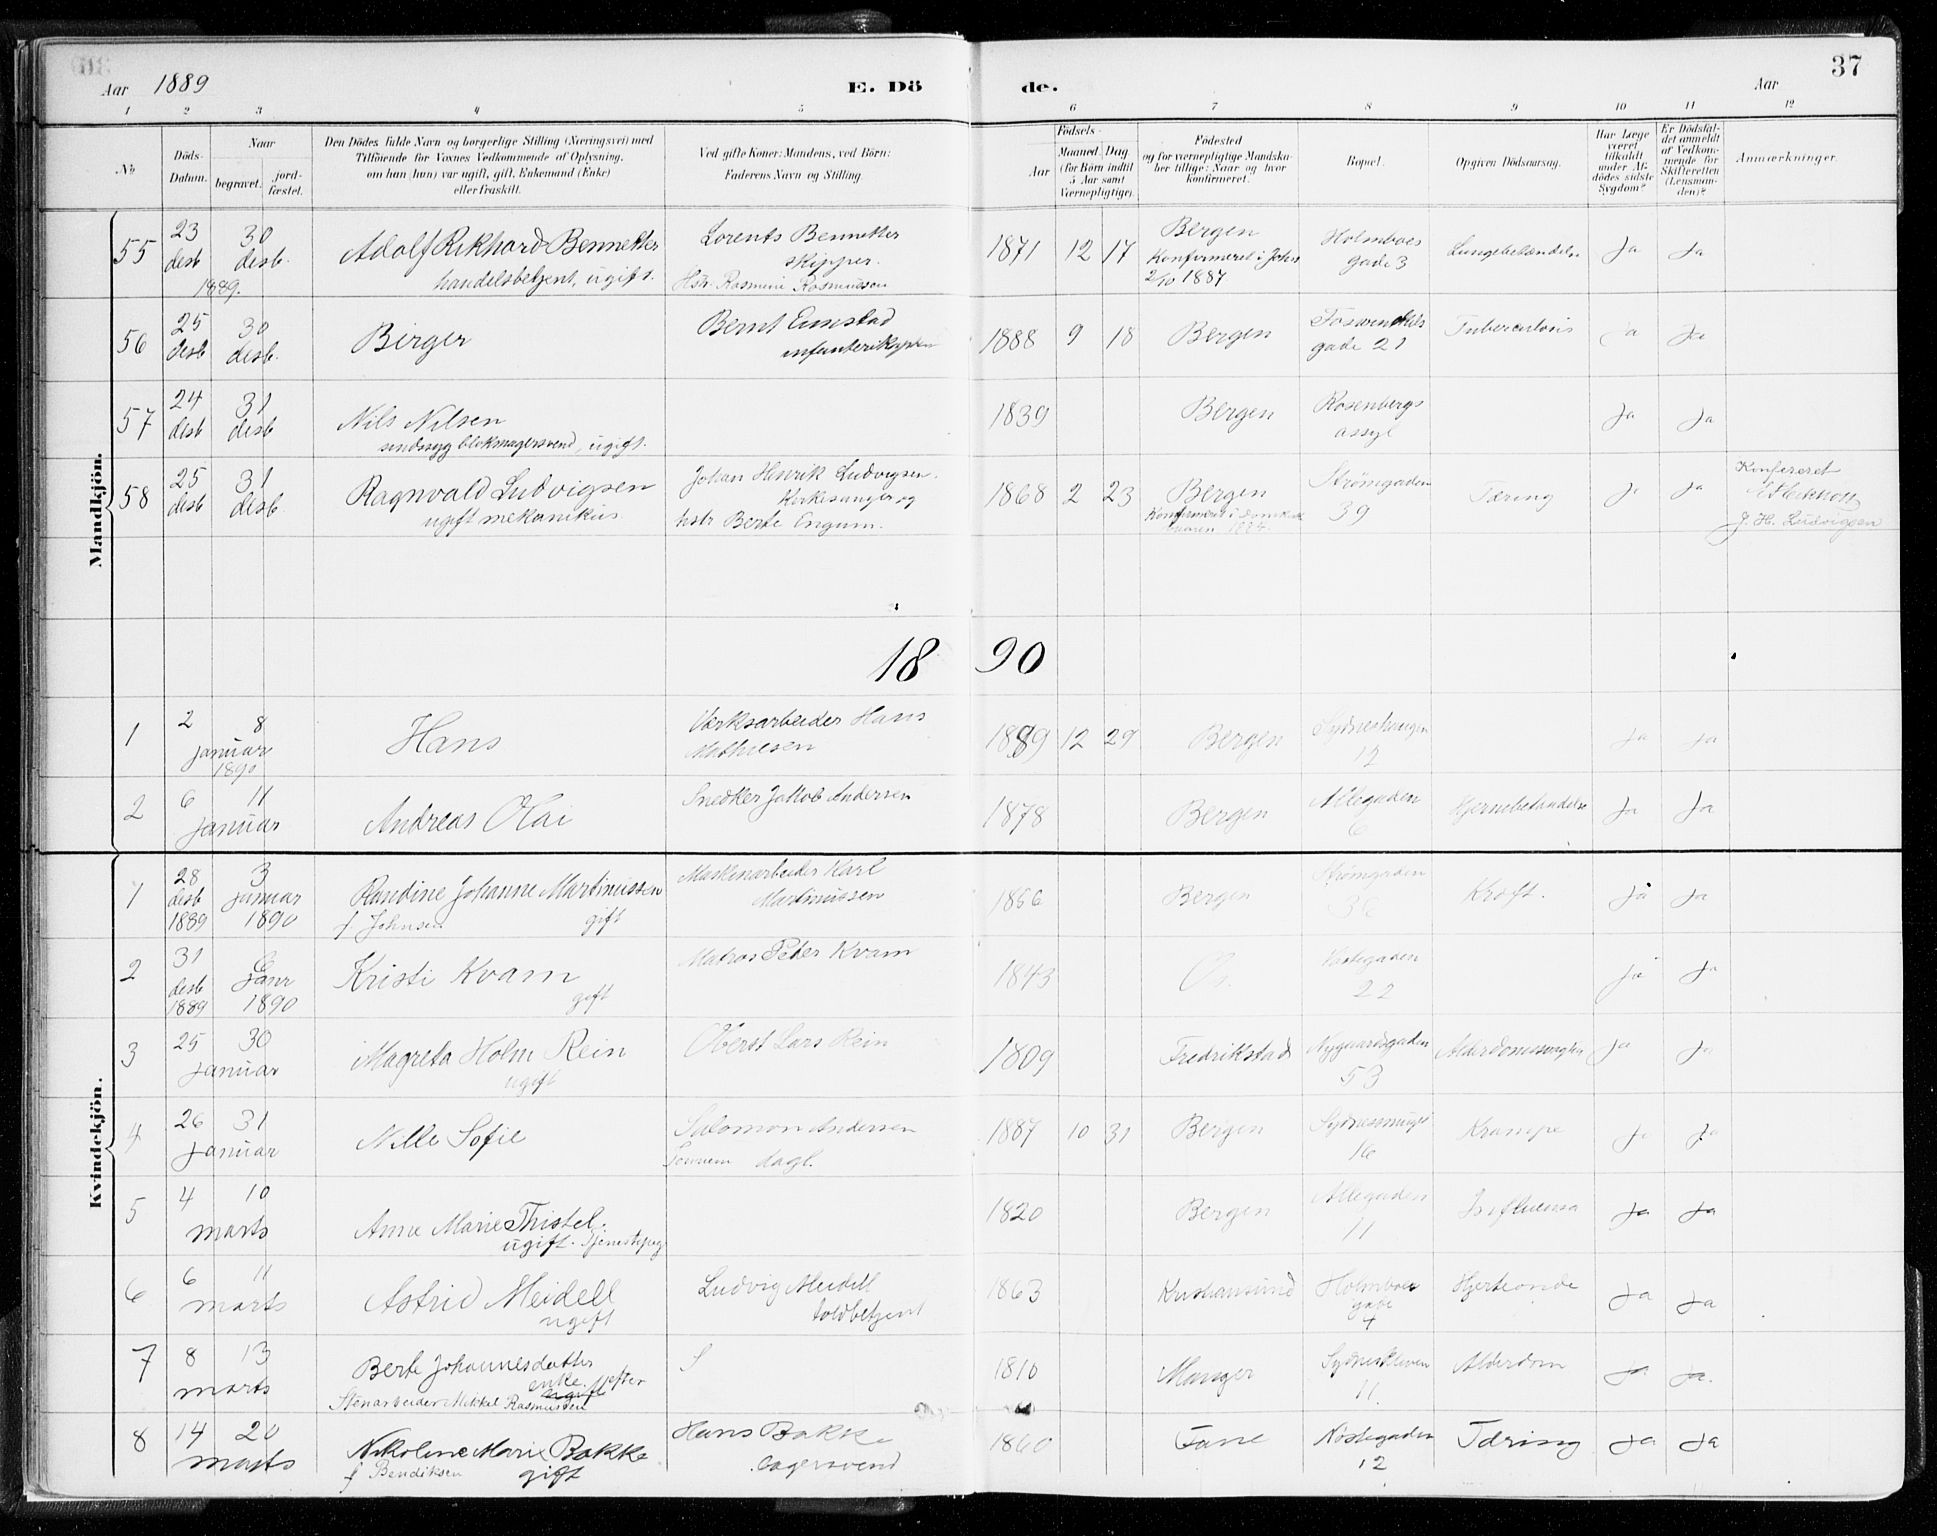 Aar 1889 E. Dö de. Aar 37
1 2 3 4 5 6 7 8 9 10 11 12
No
Döds-Datum.
Naar begravet. jordfæstet.
Den Dödes fulde Navn og borgerlige Stilling (Næringsvei) med
Tilföiende for Voxnes Vedkommende af Oplysning,
om han (hun) var ugift, gift, Enkemand (Enke)
eller fraskilt.
Ved gifte Koner: Mandens, ved Börn:
Faderens Navn og Stilling.
Födsels-
Aar Maaned. Dag
(for Börn indtil
5 Aar samt
Værnepligtige)
Födested
og for værnepligtige Mandska-
ber tillige: Naar og hvor
konfirmeret.
Bopæl.
Opgiven Dödsaarsag.
Har Læge
været
tilkaldt
under Af-
dödes sidste
Sygdom?
Er Dödsfal-
det anmeldt
af Vedkom-
mende for
Skifteretten
(Lensman-
den)?
Anmærkninger.
Mandkjön.
55 23 desb 30 desb. 1889. Adolf Rikhard Bennetter
handelsbetjent, ugift.
Lorents Bennetter
skipper.
Hstr. Rasmine Rasmussen
1871 12 17 Bergen
Konfirmeret i Johs
2/10 1887
Holmboes
gade 3
Lungebetændelse Ja Ja
56 25 desb 30 desb. Birger
Bernt
1888 9 18 Bergen
gade 21
Tuberculosis Ja Ja
57 24 desb 31 desb Nils Nilsen
sindssyg blokmagersvend, ugift.
1839 Bergen Rosenbergs
assyl
Ja Ja
58 25 desb 31 desb. Ragnvald Ludvigsen
ugift mekanikus
Johan Henrik Ludvigsen.
Kirkesanger og
hstr Berte Engum.
1868 2 23 Bergen
Konfirmeret i domkirk
1884.
Strömgaden
39
Tæring Ja Ja
Konfereret
J. H. Ludvigsen
1890
1 2 8 januar 1890 Hans
Værksarbeider Hans
Mathiesen
1889 12 29 Bergen Sydneshaugen
12
Ja Ja
2 6 11 januar Andreas Olai
Snedker Jakob Andersen
1878 Bergen Allegaden
6
Hjernebetændelse Ja Ja
Kvindekjön.
1 28 desb 1889 3 januar 1890 Randine Johanne Martinussen
f. Johnsen gift
Maskinarbeider Karl
Martinussen
1866 Bergen Strömgaden
36
Kræft. Ja Ja
2 31 desb 1889 6 janr 1890 Kristi Kvam
gift
Matros Peter Kvam
1843 Os. Nöstegaden
22
Ja Ja
3 25 30 januar Magreta Holm Rein
ugift
Oberst Lars Rein
1809 Fredrikstad Nygaardsgaden
53
Ja Ja
4 26 31 januar Nille Sofie
Salomon Andersen
dagl.
1887 10 31 Bergen
16
Krampe Ja Ja
5 4 10 marts Anne Marie Thistel.
ugift. tjenestepige
1820 Bergen Allegaden
11
Influensa Ja Ja
6 6 11 marts Astrid Meidell
ugift
Ludvig Meidell
toldbetjent
1863 Kristiansund Holmboes
gade
4
Hjerteonde Ja Ja
7 8 13 marts Berte Johannesdatter
enke efter
ugift
Stenarbeider Mikkel Rasmussen
1810 Manger Sydneskleven
11.
Alderdom Ja Ja.
8 14 20 marts Nikoline Marie Bakke
f Bendiksen gift
Hans Bakke
bagersvend
1860 Fane Nöstegaden
12
Tæring Ja Ja